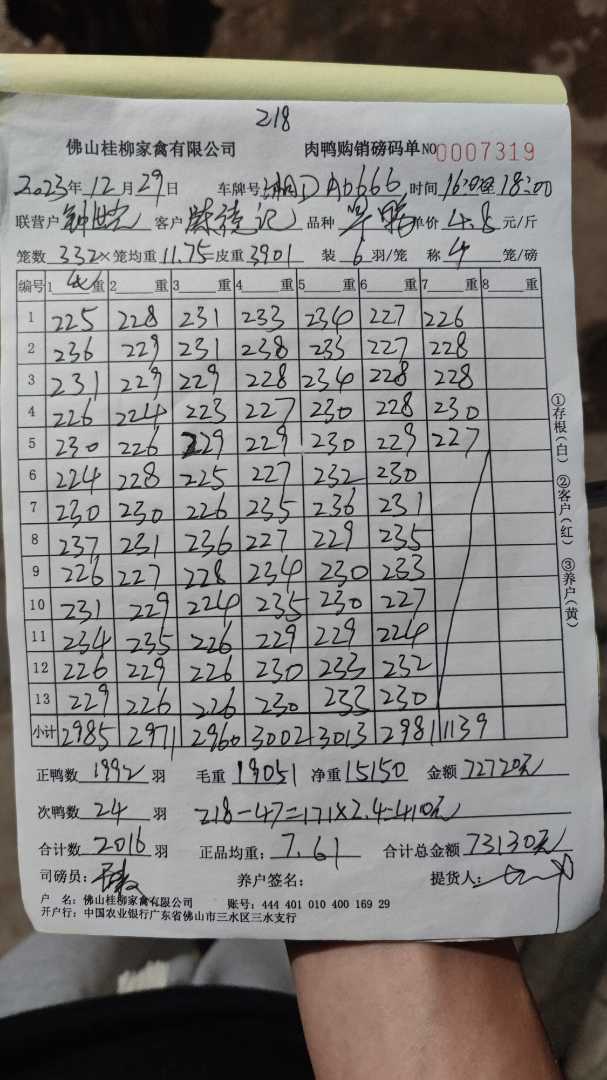 218
佛山桂柳家禽有限公司 肉鸭购销磅码单 NO 0007319
2023年12月29日 车牌号:湘DA6666 时间16:00至18:00
联营户 客户 陈德记 品种 单价4.8元/斤
笼数332×笼均重11.75=皮重3901 装6羽/笼 称4笼/磅
编号 1 4x重 2 重 3 重 4 重 5 重 6 重 7 重 8 重
1 225 228 231 233 234 227 226
2 236 229 231 238 233 227 228
3 231 229 229 228 234 228 228
4 226 224 223 227 230 228 230
5 230 226 229 229 230 229 227
6 224 228 225 227 232 230
7 230 230 226 235 236 231
8 237 231 236 227 229 235
9 226 227 228 234 230 233
10 231 229 224 235 230 227
11 234 235 226 229 229 224
12 226 229 226 230 233 232
13 229 226 226 230 233 230
小计 2985 2971 2960 3002 3013 2981 1139
①存根(白) ②客户(红) ③养户(黄)
正鸭数1992羽 毛重19051 净重15150 金额72720元
次鸭数24羽 218-47=171×2.4=410元
合计数2016羽 正品均重:7.61 合计总金额73130元
司磅员: 养户签名: 提货人:
户 名:佛山桂柳家禽有限公司 账号:444 401 010 400 169 29
开户行:中国农业银行广东省佛山市三水区三水支行